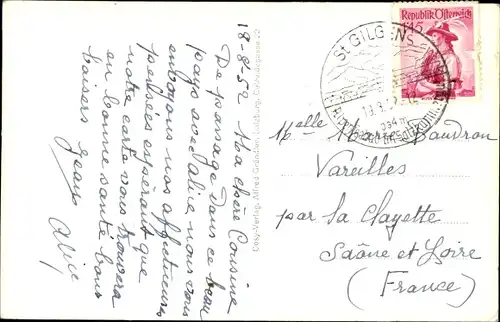 18-8-52 Ma chère Cousine
De passage dans ce beau
pays avec alice nous vous
envoyons nos affectueuses
pensées espérant que
notre carte vous trouvera
en bonne santé bons
baisers
Alice
Cosy-Verlag, Alfred Gründler, Salzburg,
ST. GILGEN
Republik Österreich
1·45
Melle Marie
Vareilles
par la Clayette
Saône et Loire
(France)